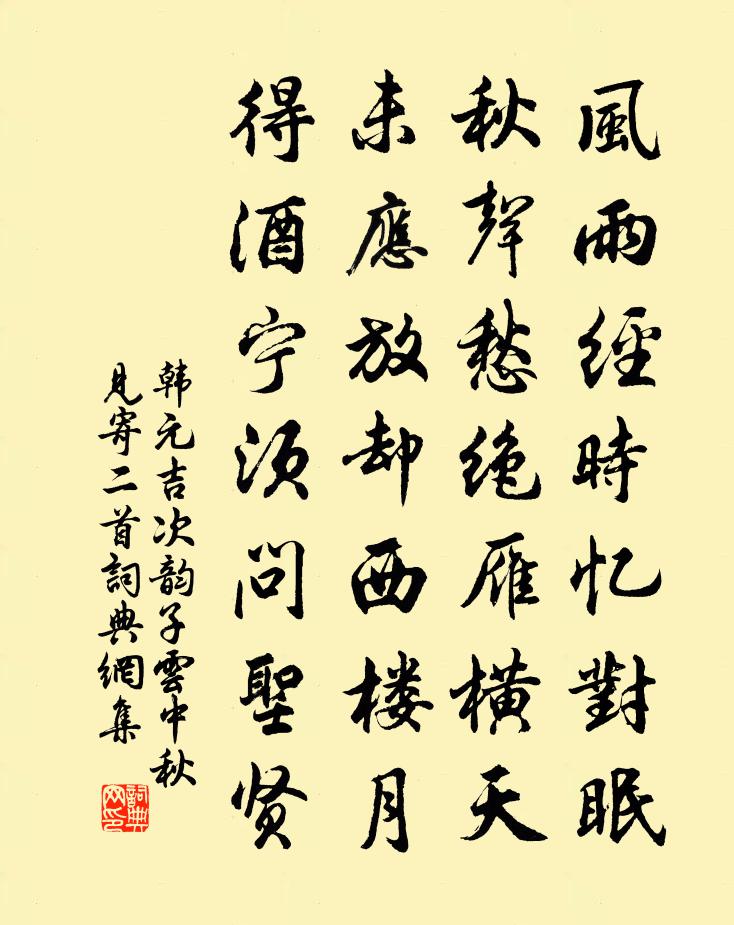 風雨經時忆對眠
秋聲愁绝雁横天
未應放却西楼月
得酒宁须問聖贤
韩元吉次韵子雲中秋
見寄二首詞典網集
詞典网印